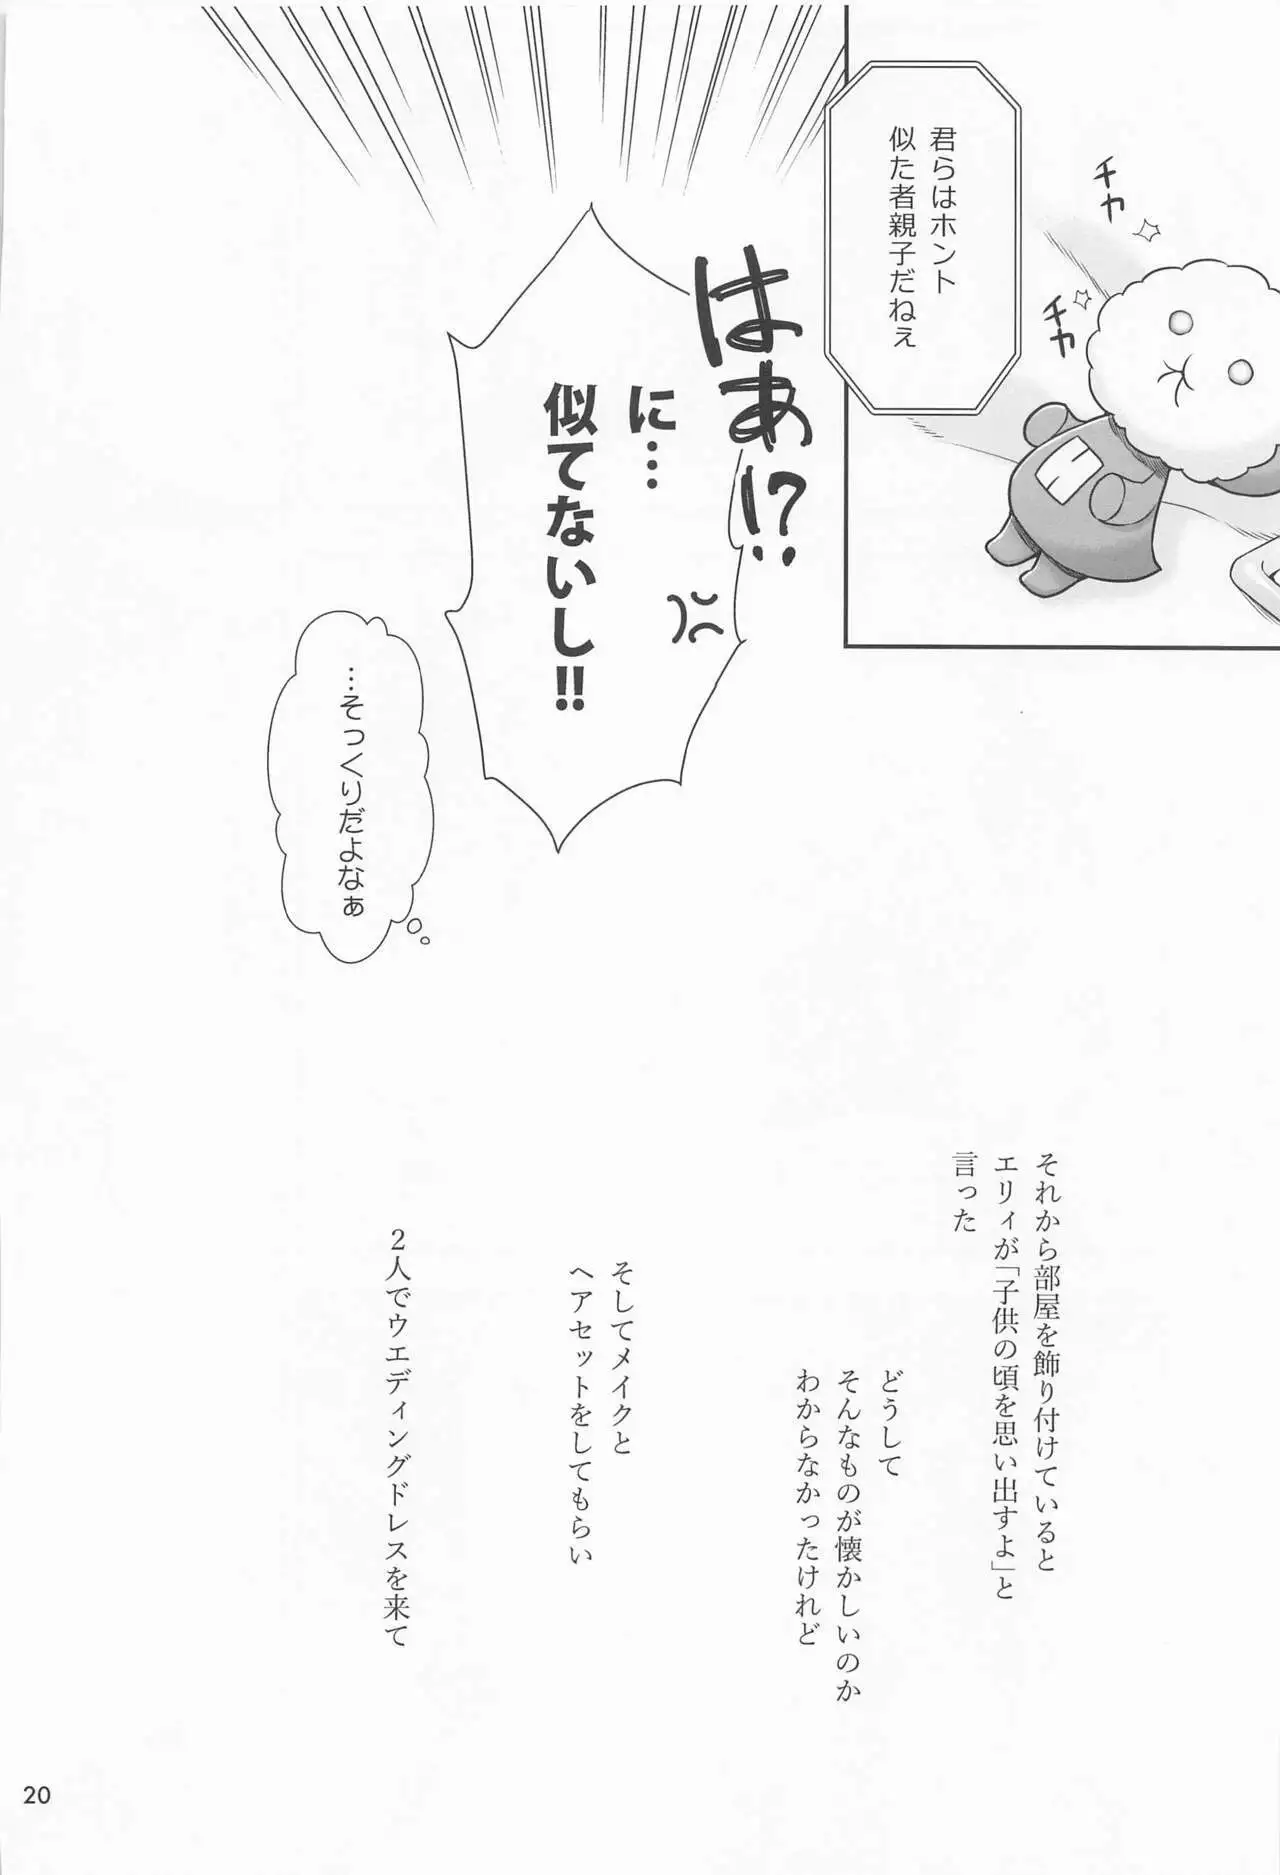 チカ
チカ
君らはホント
似た者親子だねぇ
はあ!?
に…
似てないし!!
…そっくりだよなぁ
それから部屋を飾り付けていると
エリィが「子供の頃を思い出すよ」と
言った
どうして
そんなものが懐かしいのか
わからなかったけれど
そしてメイクと
ヘアセットをしてもらい
2人でウエディングドレスを来て
20